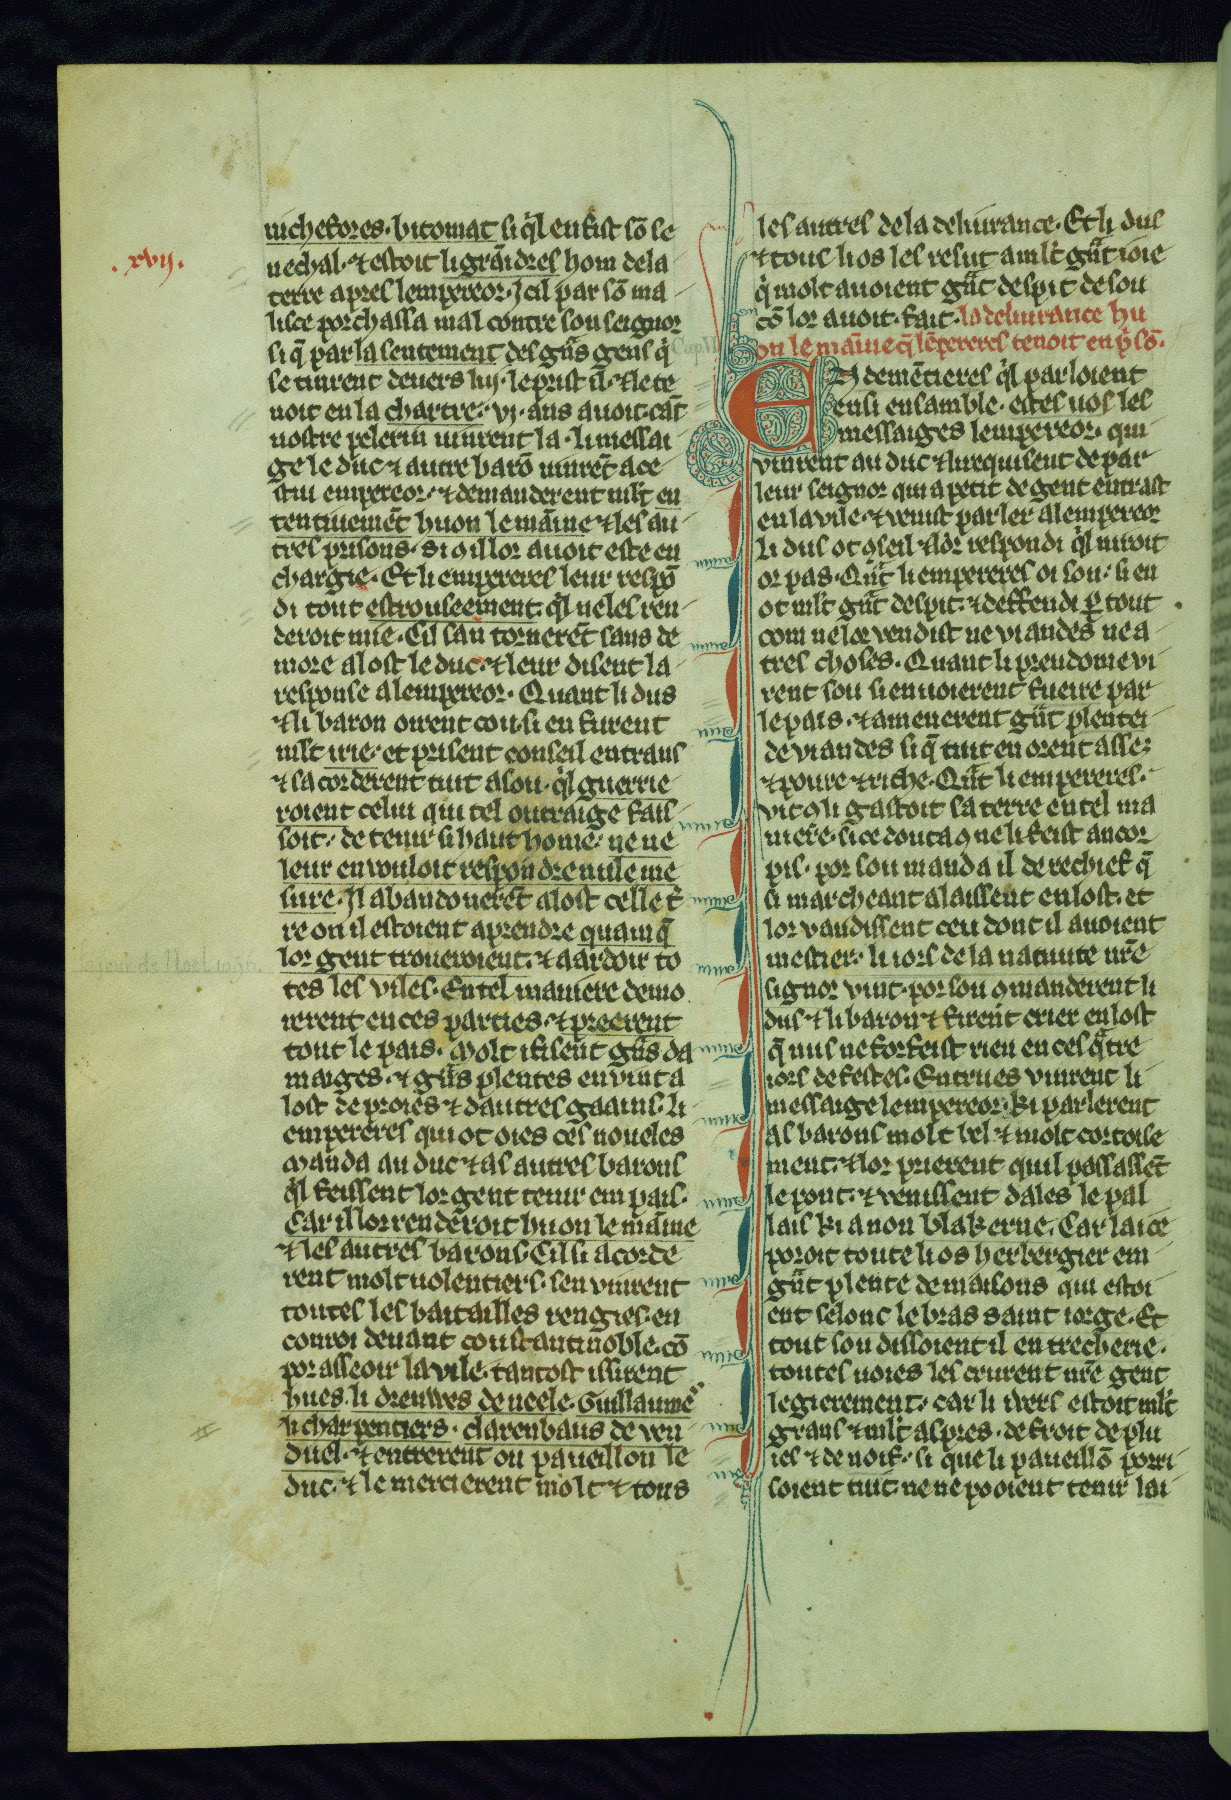 .xvij.
nicheforez. bitomat si q̇l en fist sō se
nechal. ⁊ estoit li grāidres hom de la
terre apres lempereor. J cil par sō ma
lisce porchassa mal contre son seignor
si q̄ par la sentement des gn̄s gens q̇
se tinrent devers lui. le prist il. ⁊ le te
noit en la chartre. vi. ans avoit. cāt
nostre pelerin vinrent la. li messai
ge le duc ⁊ autre barō vinrēt a ce
stui empereor. ⁊ demanderent mlt en
tentivemēt huon le māine ⁊ les au
tres prisons. si o il lor avoit este en
chargie. Et li empereres leur respō
di tout estrouseement. q̇l ne les ren
deroit mie. Cil san tornerēt sans de
more a lost le duc. ⁊ leur disent la
response a lempereor. Quant li dus
⁊ li baron oirent cou. si en furent
mlt irie. et prisent conseil entraus
⁊ sa corderent tuit a sou. q̇l guerrie
roient celui qui tel outraige fais
soit. de tenir si haut home. ne ne
leur en vouloit respondre nule me
sure. Jl abandonerēt a lost celle t̄
re on il estoient a prendre quanq̄
lor gent troueroient. ⁊ a ardoir to
tes les viles. En tel maniere demo
rerent en ces parties. ⁊ preerent
tout le pais. Molt i fisent gn̄s da
maiges. ⁊ gn̄s plentes en vint a
lost de proies ⁊ dautres gaains. li
empereres qui ot oies ces noueles
manda au duc ⁊ as autres barons
q̇l feissent lor gent tenir em pais.
Car il lor renderoit huon le māine
⁊ les autres barons. Cil si acorde
rent molt uolentiers. sen vinrent
toutes les batailles rengies. en
conroi devant constantinoble. cō
por asseoir la vile. tantost issirent
hues. li dreuwes de neele. Guillaume
li charpentiers. clarenbaus de ven
duel. ⁊ entrerent ou paveillon le
duc. ⁊ le mercierent molt ⁊ tous
les autres de la delivrance. Et li dus
⁊ tous li os les resut a mlt gn̄t ioie
q̇ molt avoient gn̄t despit de sou
cō lor avoit. fait. la delivrance hu
on le māine q̄ lēpereres tenoit en p̄sō.
EN demētieres q̇l parloient
ensi ensamble. estes vos les
messaiges lempereor. qui
vinrent au duc ⁊ li requisent de par
leur seignor qui a petit de gent entrast
en la vile. ⁊ venist parler a lempereor
Li dus ot ꝯseil ⁊ lor respondi q̇l niroit
or pas. Qn̄t li empereres oi sou. si en
ot mlt gn̄t despit. ⁊ deffendi ꝑ tout
com ne lor vendist ne viandes ne a
tres choses. Quant li preudome vi
rent sou si envoierent fueire par
le pais. ⁊ amenerent gn̄t plentei
de viandes si q̄ tuit en orent assez
⁊ povre ⁊ riche. Qn̄t li empereres.
vit ꝯ li gastoit sa terre en tel ma
niere. si ce douta ꝯ ne li feist ancor
pis. por sou manda il de rechief q̄
si marcheant alaissent en lost. et
lor vandissent ceu dont il avoient
mestier. li iors de la nativite nr̄e
signor vint. por sou ꝯmanderent li
dus ⁊ li baron ⁊ firent crier en lost
q̄ nus ne forfeist rien en ces q̄tre
iors de festes. Entrues vinrent li
messaige lempereor. ki parlerent
as barons molt bel ⁊ molt cortoise
ment. ⁊ lor prierent quil passassēt
le pont. ⁊ venissent dales le pal
lais ki a non blakerne. Car la ice
poroit toute li os herbergier em
gn̄t plente de maisons qui estoi
ent selonc le bras saint iorge. Et
tout sou dissoient il en trecherie.
toutes voies les crurent nr̄e gent
legierement. car li ivers estoit mlt
grans ⁊ mlt aspres. de froit de plu
ies ⁊ de noif. si que li paveillō porri
soient tuit. ne ne pooient tenir lai